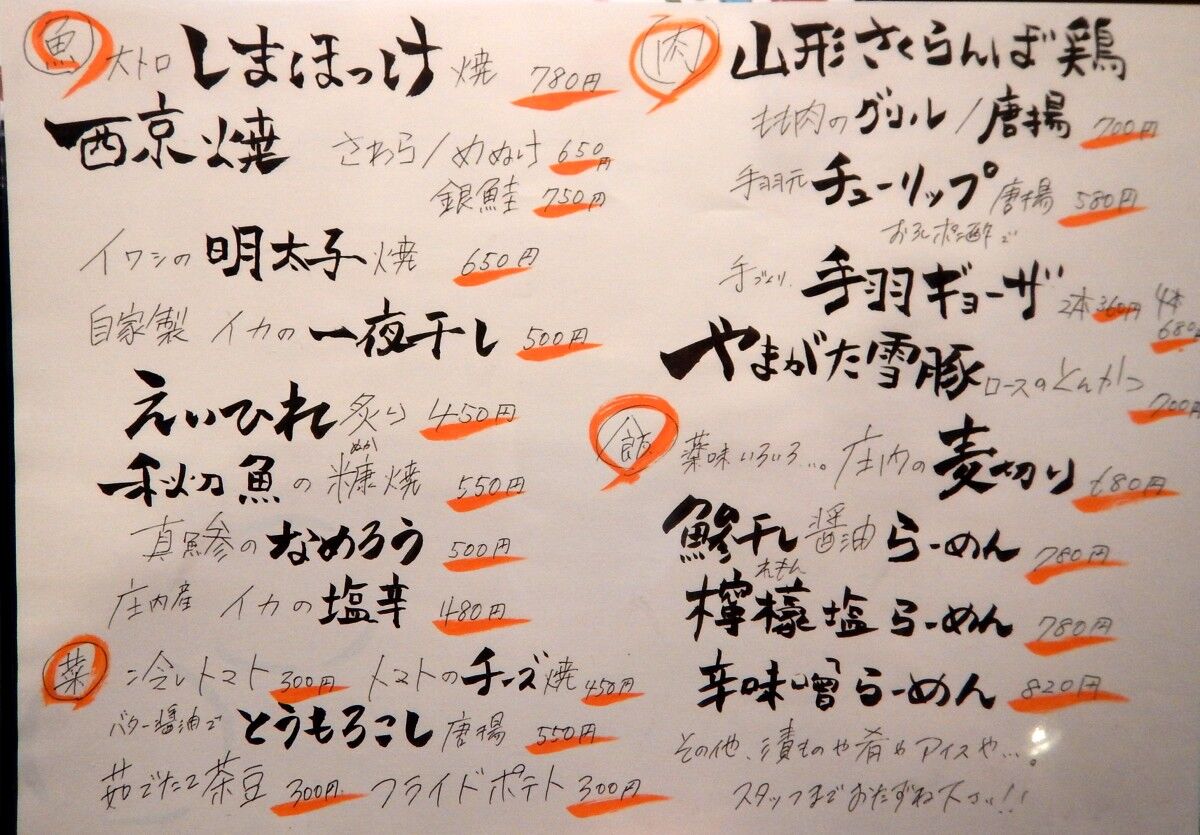 魚 大トロ しまほっけ 焼 780円
西京焼 さわら/めぬけ 650円
銀鮭 750円
イワシの 明太子 焼 650円
自家製 イカの 一夜干し 500円
えいひれ 炙り 450円
秋刀魚の糠焼 550円
ぬか
真鯵の なめろう 500円
庄内産 イカの 塩辛 480円
菜 冷しトマト 300円 トマトのチーズ焼 450円
バター醤油で とうもろこし 唐揚 550円
茹でたて茶豆 300円 フライドポテト 300円
肉 山形さくらんぼ鶏
もも肉の グリル/唐揚 700円
手羽元 チューリップ 唐揚 580円
おろしポン酢で
手づくり 手羽ギョーザ 2本 360円 4本 680
やまがた雪豚 ロースのとんかつ 700円
飯 薬味いろいろ…。庄内の 麦切り 680円
鯵干し 醤油 らーめん 780円
れもん
檸檬塩らーめん 780円
辛味噌らーめん 820円
その他、漬ものや肴やアイスや…。
スタッフまでおたずね下さい!!